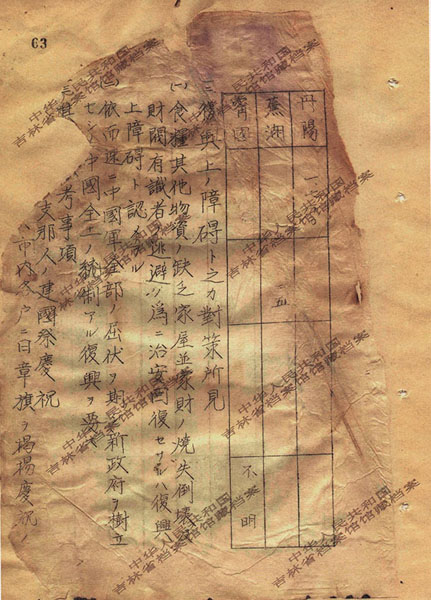 63
丹陽 一
蕪湖 二五
寧国 不明
二、復興上ノ障碍ト之カ対策所見
(一)食糧其他物資ノ缺乏家屋並家財ノ焼失倒壊
財閥有識者ノ逃避ノ為ニ治安回復セサレハ復興
上障碍ト認メラル
(二)依而速ニ中國軍全部ノ屈伏ヲ期シ新政府ヲ樹立
セシメ中國全土ノ統制アル復興ヲ要ス
考事項
支那人ノ建國祭慶祝
市内各戸ニ日章旗ヲ掲揚慶祝ノ
中华人民共和国
吉林省档案馆馆藏档案